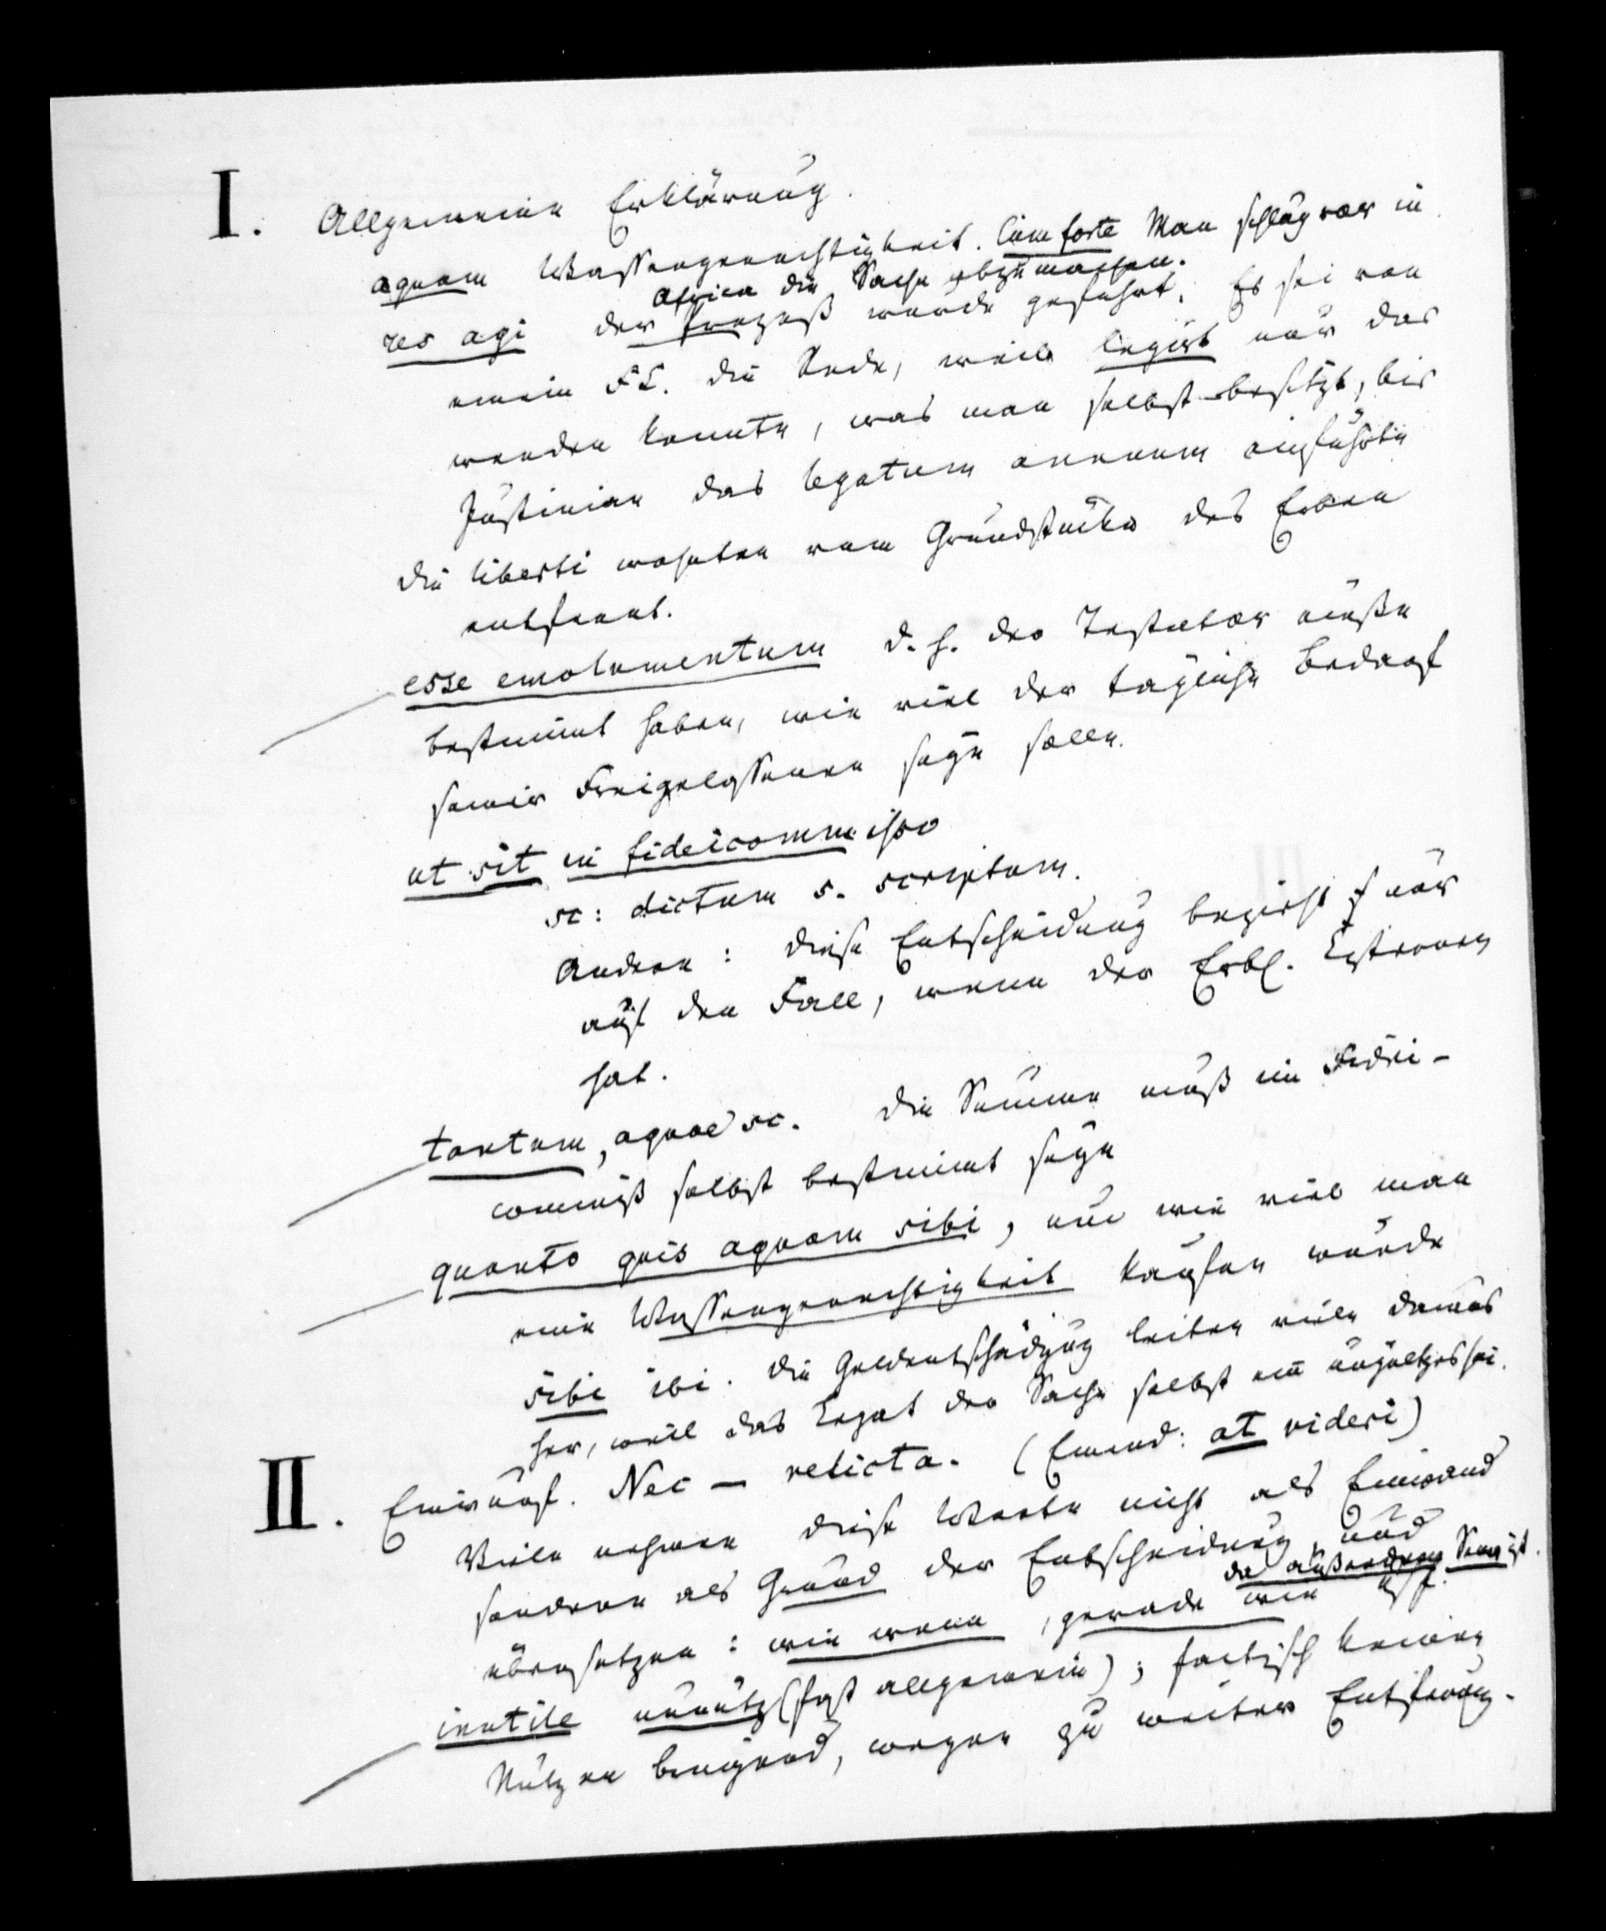 I. Allgemeine Erklärung.
aquam Wassergerechtigkeit. Cum forte Man schlug vor in
Africa die Sache abzumachen.
res agi der Prozeß wurde geführt. Es sei von
einem FC. die Rede, weil legirt nur das
werden konnte, was man selbst besitzt, bis
Justinian das legatum annuum einführte
die liberti wohnten vom Grundstücke des Erben
entfernt.
esse emolumentum d. h. der Testator müße
bestimmt haben, wie viel der tägliche Bedarf
seiner Freigelassenen seyn solle.
ut sit in fideicommisso
sc: dictum s. scriptum.
Andere: diese Entscheidung bezieht s nur
auf den Fall, wenn der Erbl.
hat.
tantum, aquae sc. Die Summe muß im Fidei-
commiß selbst bestimmt seyn
quanto quis aquam sibi, um wie viel man
eine Wassergerechtigkeit kaufen würde
sibi ibi. Die Geldentschädigung leiten viele daraus
her, weil das Legat der Sache selbst ein ungültges sei.
II. Einwurf. Nec — relicta. (Emend: at videri)
Viele nehmen diese Worte nicht als Einwand
sondern als Grund der Entscheidung, und
da außerdem Sinn ist.
übersetzen: wie wenn, gerade wie usf.
inutile unnütz (fast allgemein); factisch keinen
Nutzen bringend, wegen zu weiter Entfernung.